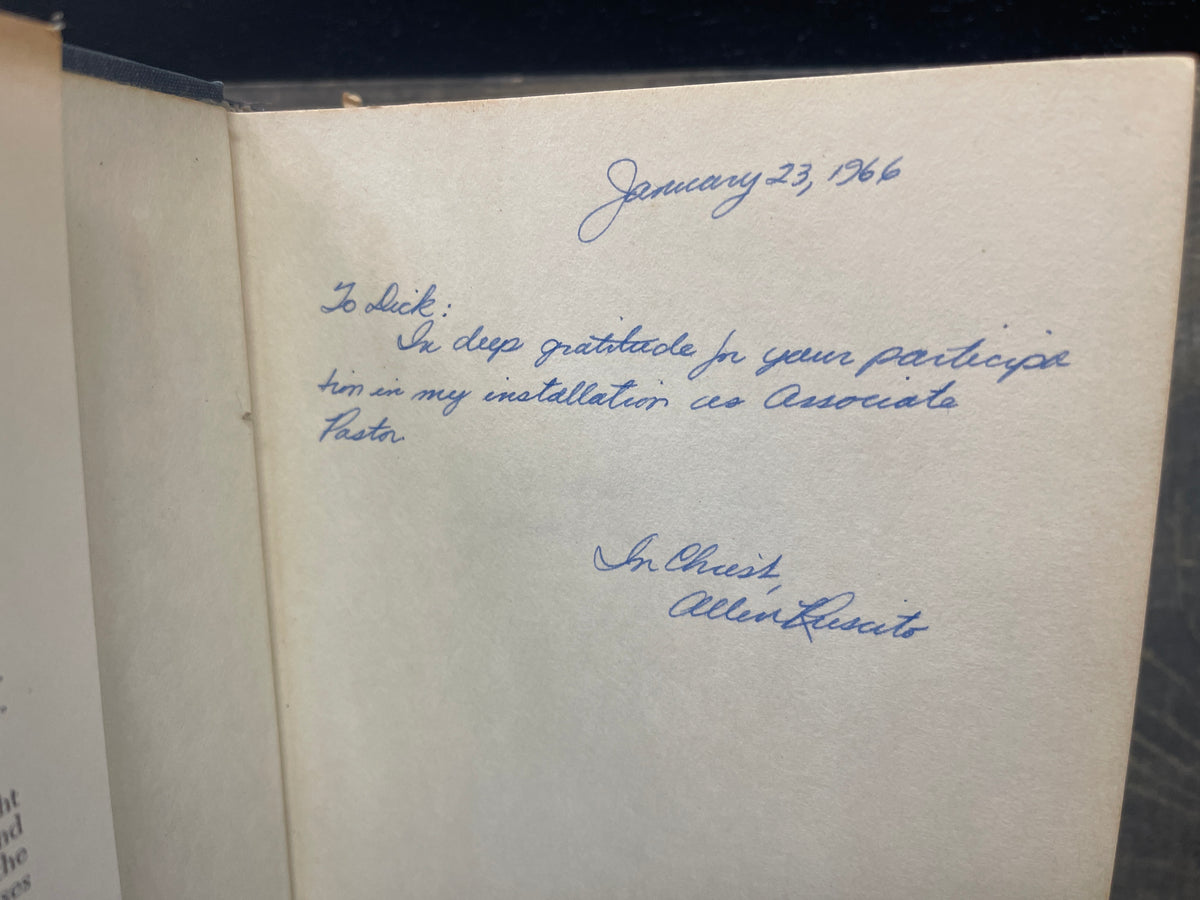 January 23, 1966
To Dick:
In deep gratitude for your participa
tion in my installation as Associate
Pastor.
In Christ,
Allen Ruscito
ht
nd
the